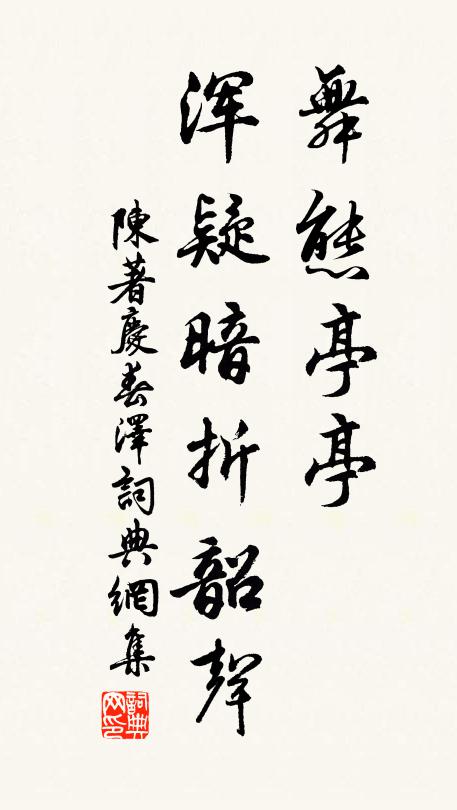 舞態亭亭
渾疑暗折韶聲
陳著慶春澤詞典網集
詞典网印